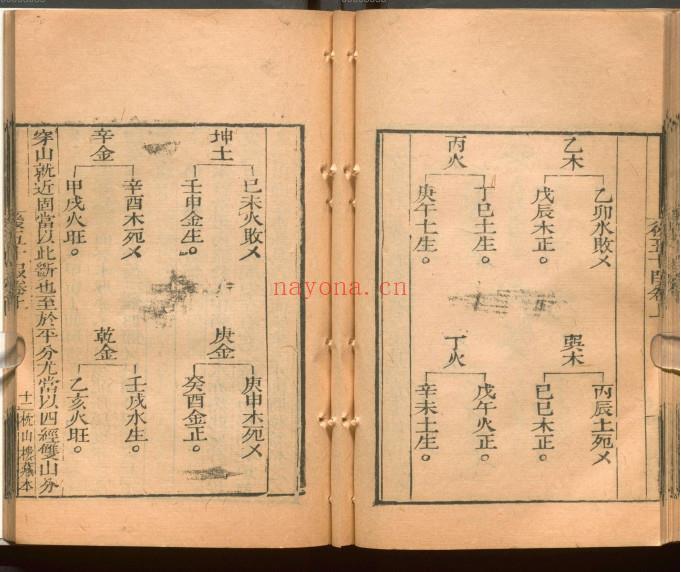 乙木
乙卯水敗乂
戊辰木正。
丙火
丁巳土生。
庚午土生。
巽木
丙辰土死乂
己巳木正。
丁火
戊午火正。
辛未土生。
坤土
己未火敗乂
壬申金生。
辛金
辛酉木死乂
甲戌火旺。
庚金
庚申木死乂
癸酉金正。
乾金
壬戌水生。
乙亥火旺。
穿山就近固當以此斷也至於平分尤當以四經雙山分
十二
枕山樓藏本
nayona.cn